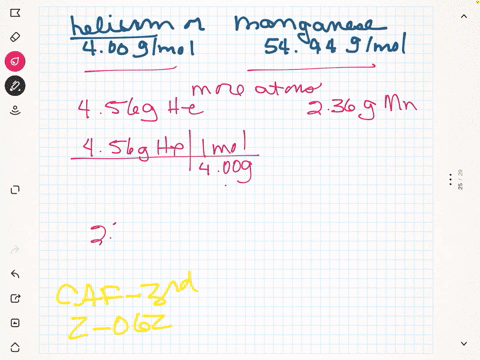 helium or manganese
4.00 g/mol 54.94 g/mol
more atoms
4.56g He 2.36 g Mn
4.56g He 1mol
4.00g
2.
CAF-3rd
Z-06Z
25 / 26